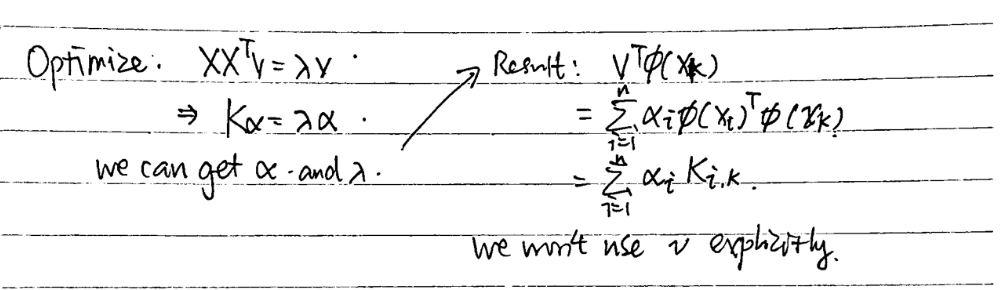 Optimize: XXᵀv = λv .
⇒ Kα = λα .
we can get α and λ.
Result: Vᵀϕ(xₖ)
= ∑ⁿᵢ₌₁ αᵢ ϕ(xᵢ)ᵀ ϕ(xₖ)
= ∑ⁿᵢ₌₁ αᵢ Kᵢ,ₖ.
we won't use v explicitly.